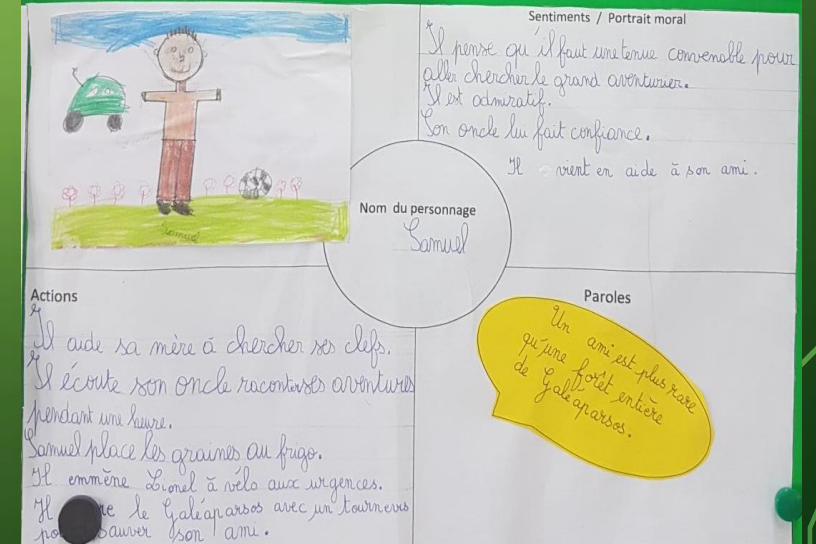 Samuel
Sentiments / Portrait moral
Il pense qu'il faut une tenue convenable pour
aller chercher le grand aventurier.
Il est admiratif.
Son oncle lui fait confiance.
Il vient en aide à son ami.
Nom du personnage
Samuel
Actions
Il aide sa mère à chercher ses clefs.
Il écoute son oncle raconter ses aventures
pendant une heure.
Samuel place les graines au frigo.
Il emmène Lionel à vélo aux urgences.
Il le Galéaparsos avec un tournevis
sauver son ami.
Paroles
Un ami est plus rare
qu'une forêt entière
de Galéaparsos.